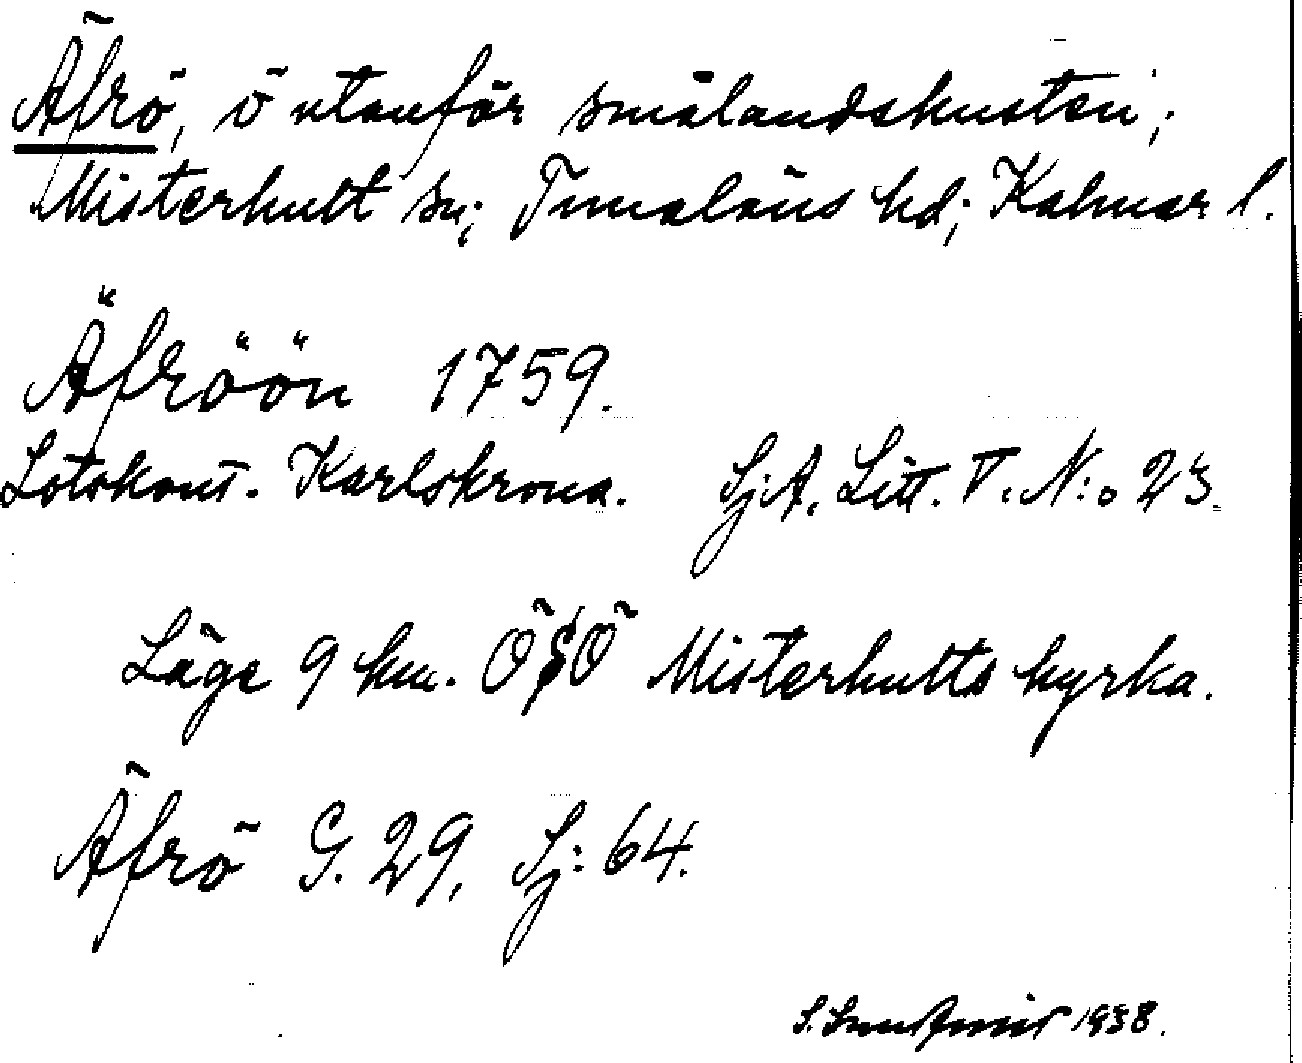 Äfrö, ö utanför smålandskusten;
Misterhult sn; Tunaläns hd; Kalmar l.
Äfröön 1759.
Lotskont. Karlskrona. Sj.A. Litt. V. N:o 23.
Läge 9 km. ÖSÖ Misterhults kyrka.
Äfrö G. 29, Sj: 64.
S. 1938.